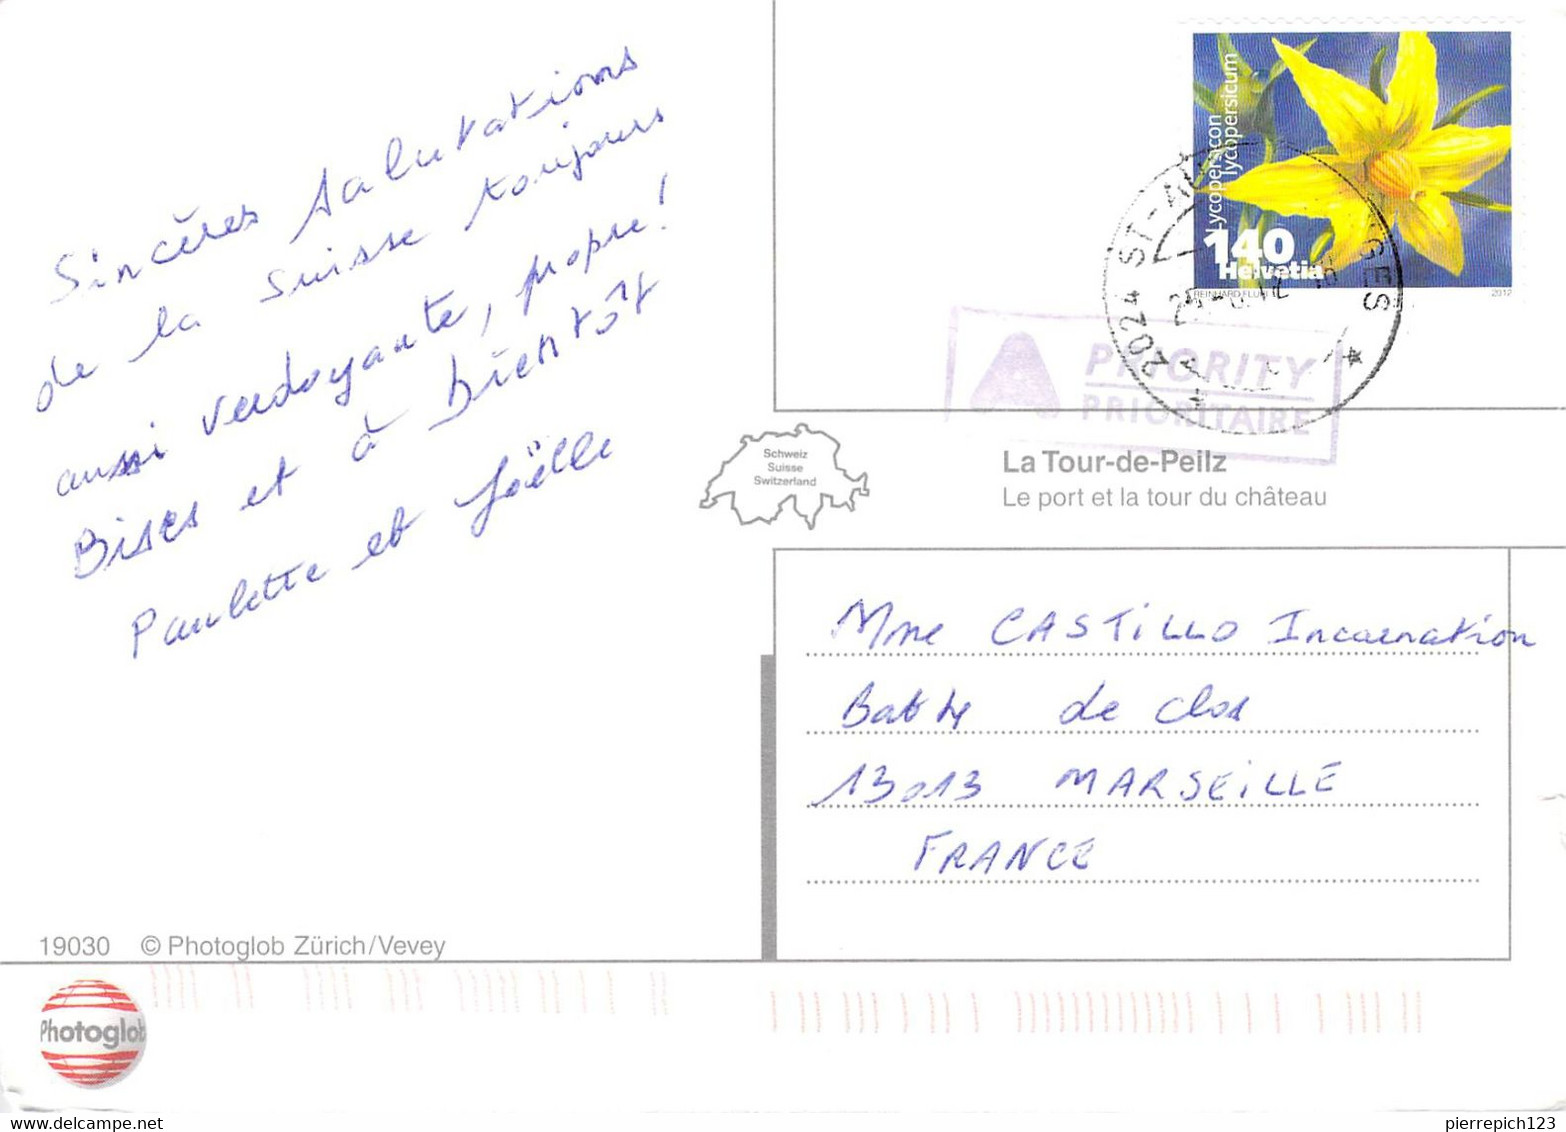 Sincères salutations
de la suisse toujours
aussi verdoyante, propre!
Bises et à bientôt
Paulette et Joëlle
Lycopersicon
lycopersicum
140
Helvetia
REINHARD FLURI
2012
2024 ST-AU
GES
A PRIORITY
PRIORITAIRE
Schweiz
Suisse
Switzerland
La Tour-de-Peilz
Le port et la tour du château
Mme CASTILLO Incarnation
Bat H4 de clos
13013 MARSEILLE
FRANCE
19030 © Photoglob Zürich/Vevey
Photoglob
pierrepich123